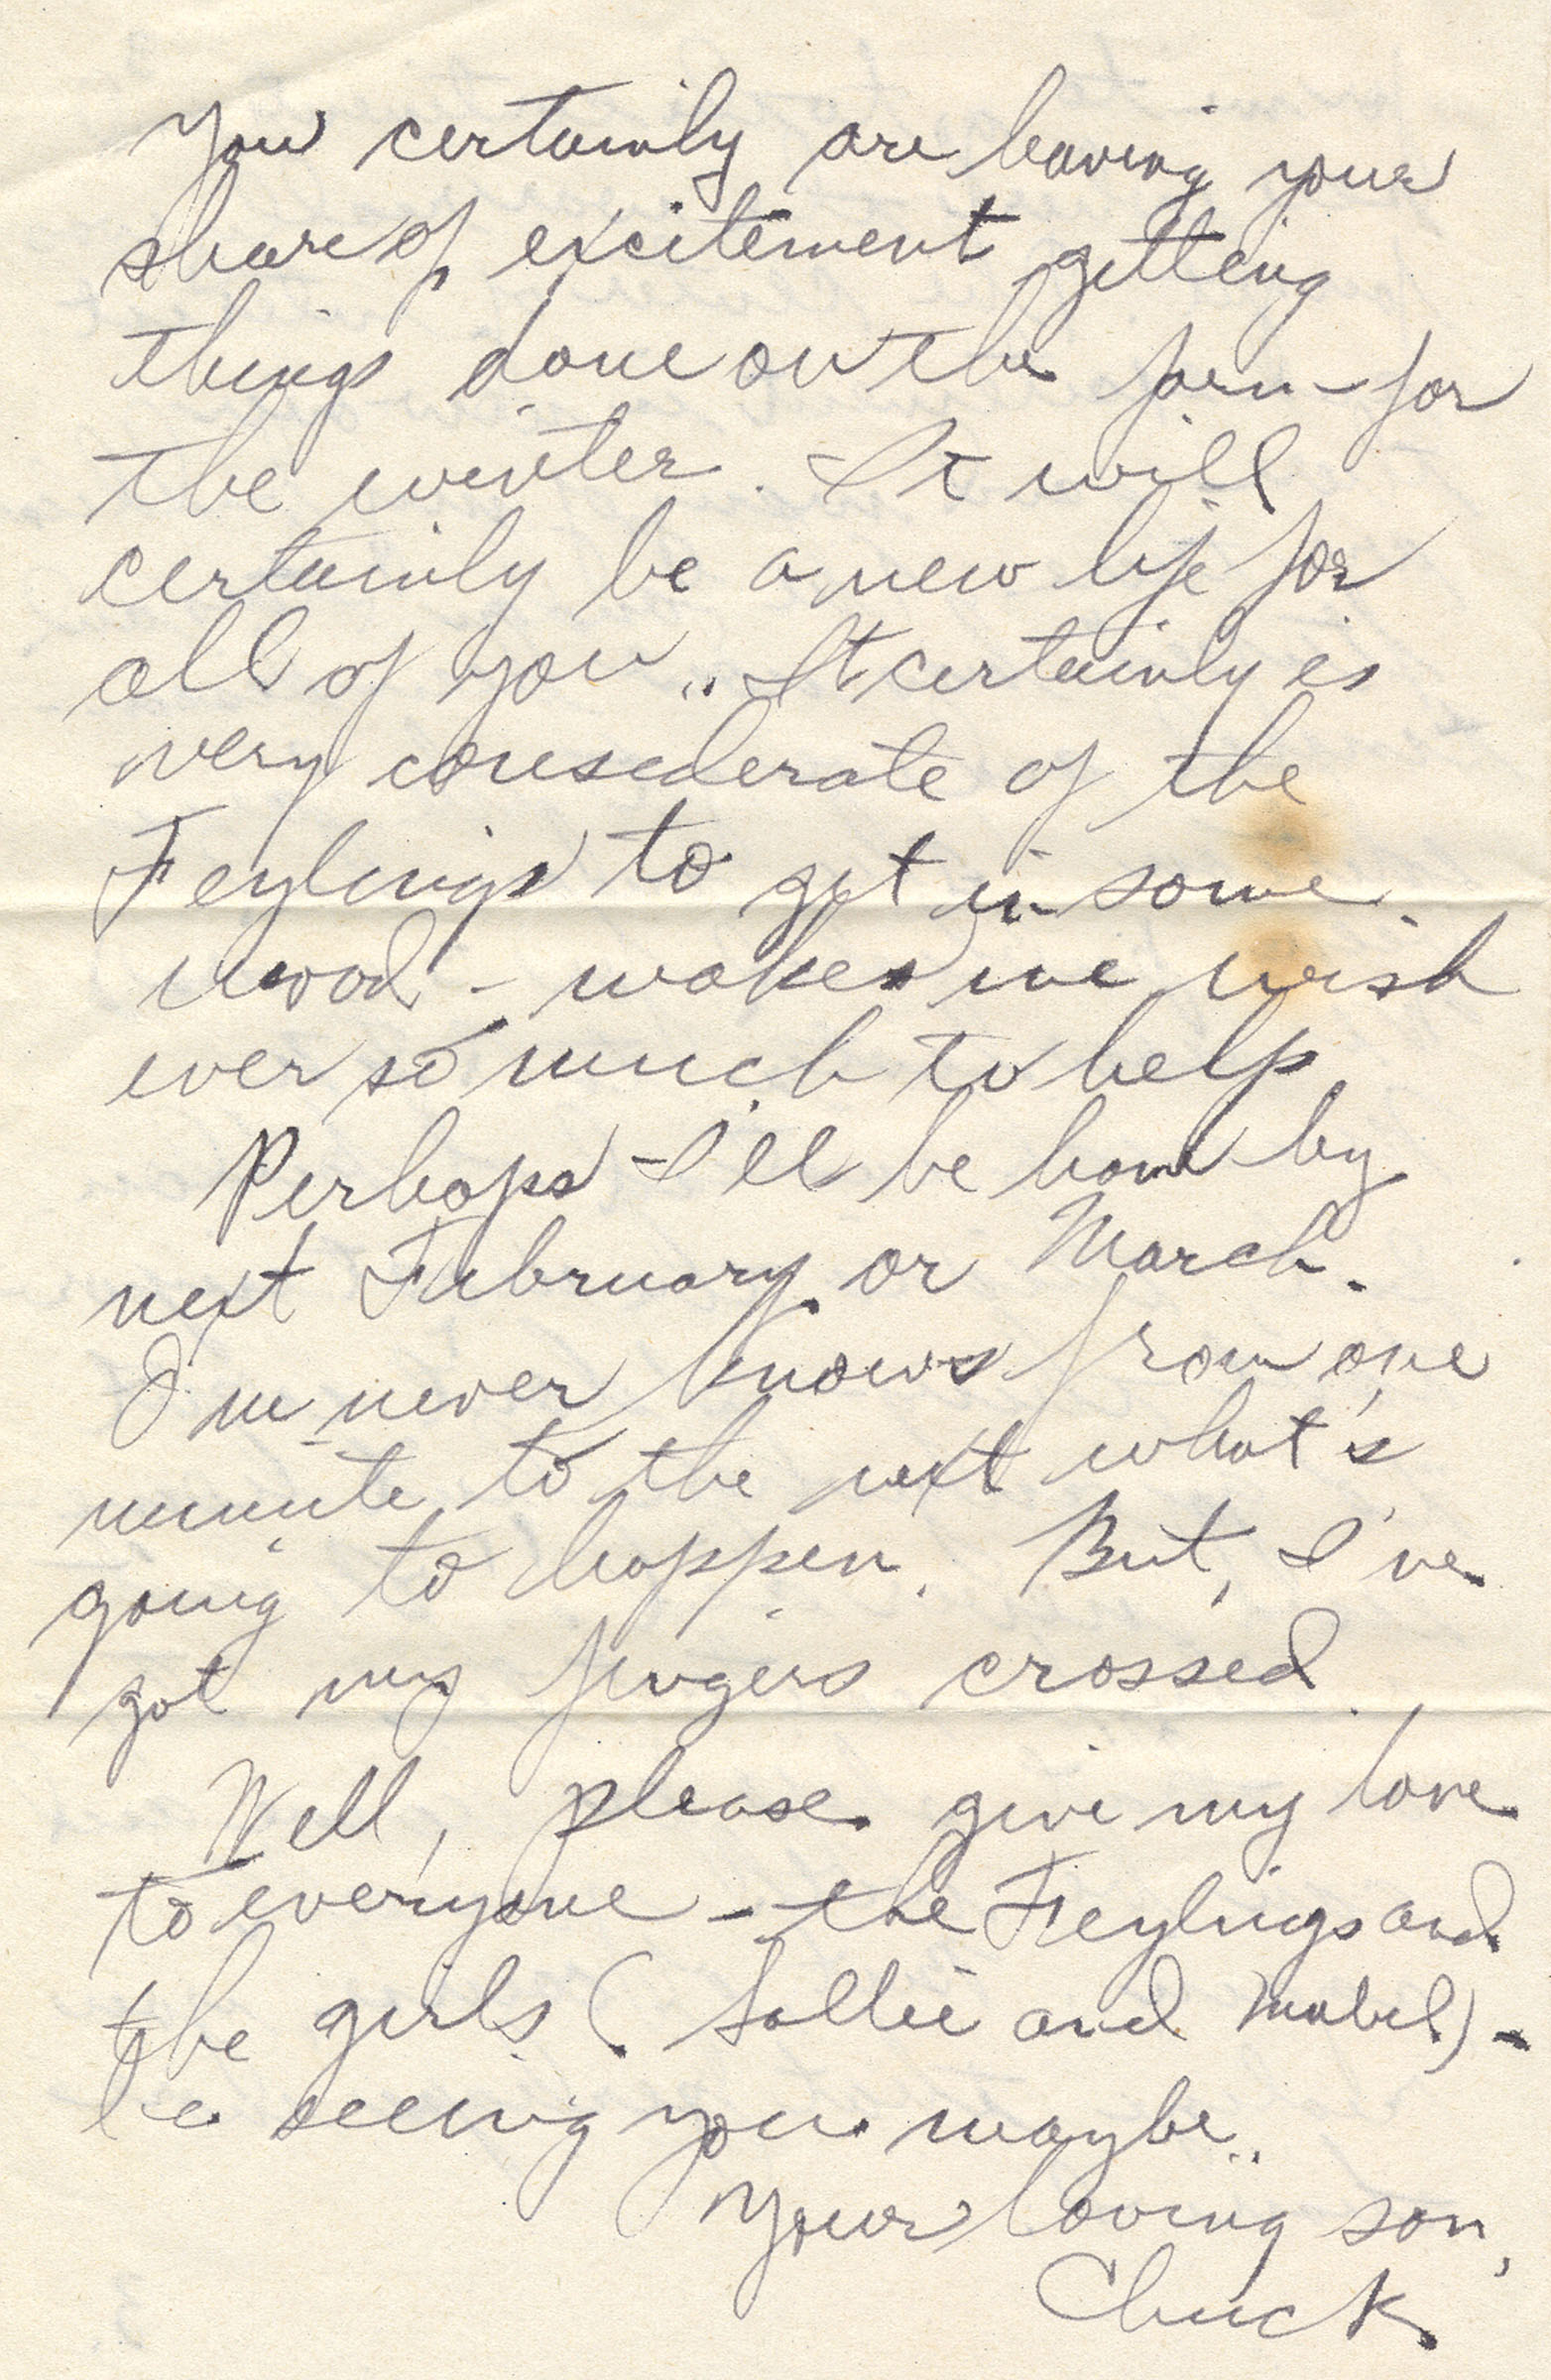 You certainly are having your
share of excitement getting
things done on the farm - for
the winter. It will
certainly be a new life for
all of you.. It certainly is
very considerate of the
Feylings to get in some
wood - makes me wish
ever so much to help
Perhaps I'll be home by
next February or March.
I'm never knows from one
minute to the next what's
going to happen. But, I've
got my fingers crossed.
Well, please give my love
to everyone - the Feylings and
the girls (Sallie and Mabel) -
be seeing you maybe..
Your loving son,
Chuck